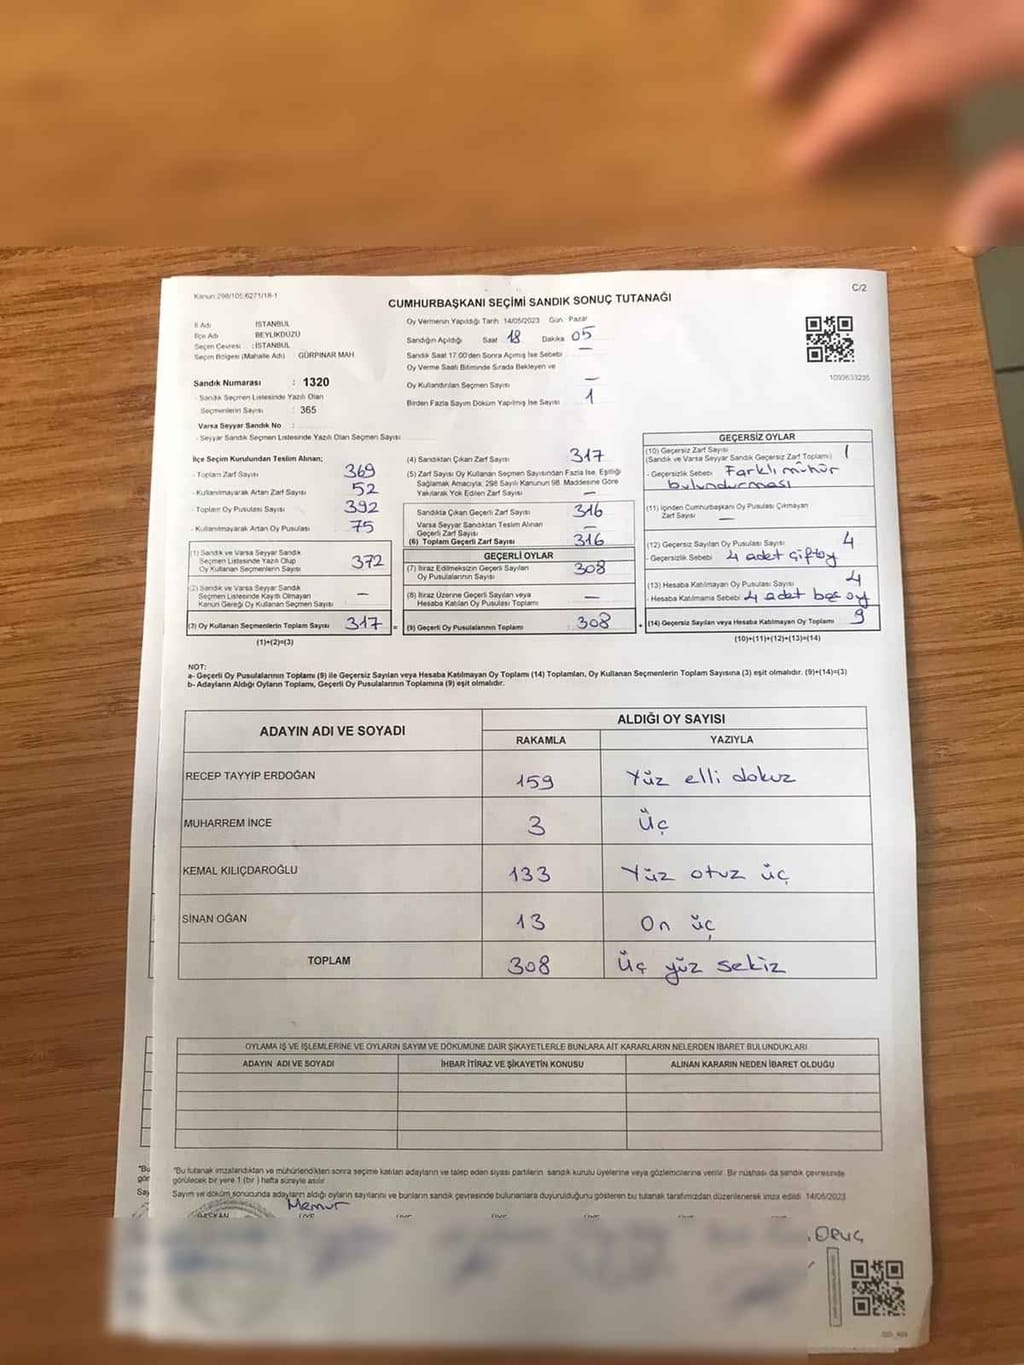 Kanun 298/105 6271/18-1
C/2
CUMHURBAŞKANI SEÇİMİ SANDIK SONUÇ TUTANAĞI
İl Adı İSTANBUL
İlçe Adı BEYLİKDÜZÜ
Seçim Çevresi : İSTANBUL
Seçim Bölgesi (Mahalle Adı) GÜRPINAR MAH
Sandık Numarası : 1320
- Sandık Seçmen Listesinde Yazılı Olan
Seçmenlerin Sayısı : 365
Varsa Seyyar Sandık No :
- Seyyar Sandık Seçmen Listesinde Yazılı Olan Seçmen Sayısı
Oy Vermenin Yapıldığı Tarih 14/05/2023 Gün Pazar
Sandığın Açıldığı Saat 18 Dakika 05
Sandık Saat 17:00'den Sonra Açılmış İse Sebebi —
Oy Verme Saati Bitiminde Sırada Bekleyen ve
Oy Kullandırılan Seçmen Sayısı —
Birden Fazla Sayım Döküm Yapılmış İse Sayısı 1
1093633235
İlçe Seçim Kurulundan Teslim Alınan;
- Toplam Zarf Sayısı 369
- Kullanılmayarak Artan Zarf Sayısı 52
- Toplam Oy Pusulası Sayısı 392
- Kullanılmayarak Artan Oy Pusulası 75
(1) Sandık ve Varsa Seyyar Sandık
Seçmen Listesinde Yazılı Olup
Oy Kullanan Seçmenlerin Sayısı 372
(2) Sandık ve Varsa Seyyar Sandık
Seçmen Listesinde Kayıtlı Olmayan
Kanun Gereği Oy Kullanan Seçmen Sayısı —
(3) Oy Kullanan Seçmenlerin Toplam Sayısı 317 =
(1)+(2)=(3)
(4) Sandıktan Çıkan Zarf Sayısı 317
(5) Zarf Sayısı Oy Kullanan Seçmen Sayısından Fazla İse, Eşitliği
Sağlamak Amacıyla; 298 Sayılı Kanunun 98. Maddesine Göre
Yakılarak Yok Edilen Zarf Sayısı —
Sandıkta Çıkan Geçerli Zarf Sayısı 316
Varsa Seyyar Sandıktan Teslim Alınan
Geçerli Zarf Sayısı —
(6) Toplam Geçerli Zarf Sayısı 316
GEÇERLİ OYLAR
(7) İtiraz Edilmeksizin Geçerli Sayılan
Oy Pusulalarının Sayısı 308
(8) İtiraz Üzerine Geçerli Sayılan veya
Hesaba Katılan Oy Pusulası Toplamı —
(9) Geçerli Oy Pusulalarının Toplamı : 308 +
GEÇERSİZ OYLAR
(10) Geçersiz Zarf Sayısı
(Sandık ve Varsa Seyyar Sandık Geçersiz Zarf Toplamı) 1
- Geçersizlik Sebebi Farklı mühür
bulundurması
(11) İçinden Cumhurbaşkanı Oy Pusulası Çıkmayan
Zarf Sayısı —
(12) Geçersiz Sayılan Oy Pusulası Sayısı 4
- Geçersizlik Sebebi 4 adet çift oy
(13) Hesaba Katılmayan Oy Pusulası Sayısı 4
- Hesaba Katılmama Sebebi 4 adet boş oy
(14) Geçersiz Sayılan veya Hesaba Katılmayan Oy Toplamı 9
(10)+(11)+(12)+(13)=(14)
NOT:
a- Geçerli Oy Pusulalarının Toplamı (9) ile Geçersiz Sayılan veya Hesaba Katılmayan Oy Toplamı (14) Toplamları, Oy Kullanan Seçmenlerin Toplam Sayısına (3) eşit olmalıdır. (9)+(14)=(3)
b- Adayların Aldığı Oyların Toplamı, Geçerli Oy Pusulalarının Toplamına (9) eşit olmalıdır.
ADAYIN ADI VE SOYADI
ALDIĞI OY SAYISI
RAKAMLA YAZIYLA
RECEP TAYYİP ERDOĞAN 159 Yüz elli dokuz
MUHARREM İNCE 3 Üç
KEMAL KILIÇDAROĞLU 133 Yüz otuz üç
SİNAN OĞAN 13 On üç
TOPLAM 308 Üç yüz sekiz
OYLAMA İŞ VE İŞLEMLERİNE VE OYLARIN SAYIM VE DÖKÜMÜNE DAİR ŞİKAYETLERLE BUNLARA AİT KARARLARIN NELERDEN İBARET BULUNDUKLARI
ADAYIN ADI VE SOYADI İHBAR İTİRAZ VE ŞİKAYETİN KONUSU ALINAN KARARIN NEDEN İBARET OLDUĞU
"Bu
gör
Say
"Bu tutanak imzalandıktan ve mühürlendikten sonra seçime katılan adayların ve talep eden siyasi partilerin sandık kurulu üyelerine veya gözlemcilerine verilir. Bir nüshası da sandık çevresinde
görülecek bir yere 1 (bir) hafta süreyle asılır
Sayım ve döküm sonucunda adayların aldığı oyların sayılarını ve bunların sandık çevresinde bulunanlara duyurulduğunu gösteren bu tutanak tarafımızdan düzenlenerek imza edildi 14/05/2023
Memur
BAŞKAN ÜYE ÜYE ÜYE ÜYE ÜYE
ORUÇ